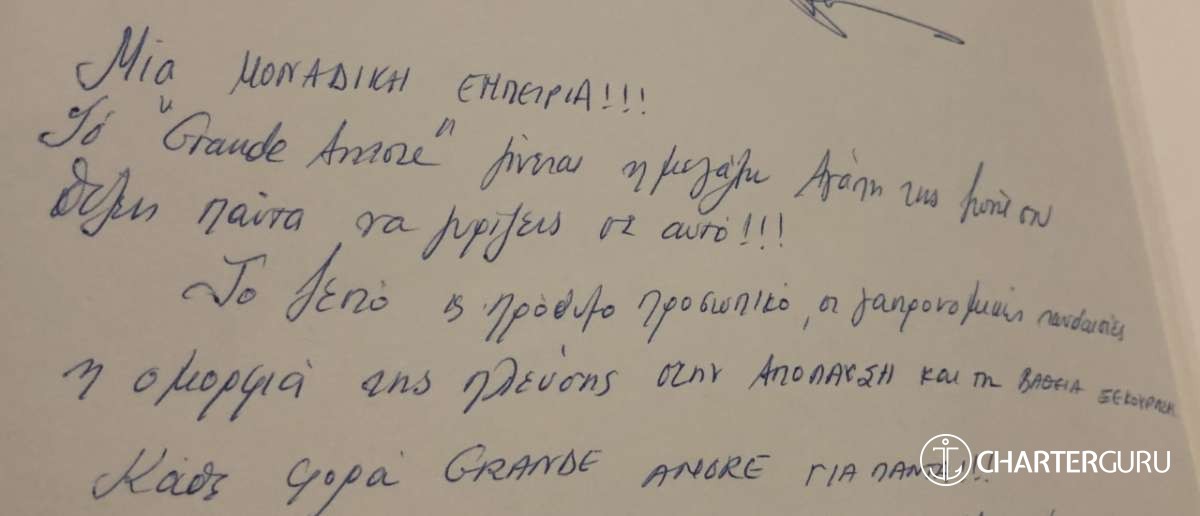 Μία ΜΟΝΑΔΙΚΗ ΕΜΠΕΙΡΙΑ!!!
Τό "Grande Amore" γίνεται η μεγάλη Αγάπη της
Θέλεις πάντα να γυρίζεις σε αυτό!!!
Το ζεστό κ πρόθυμο προσωπικό, οι γαστρονομικές πανδαισίες
η ομορφιά της πλεύσης στην ΑΠΟΛΑΥΣΗ και τη ΒΑΘΕΙΑ ΞΕΚΟΥΡΑΣΗ
Κάθε φορά GRANDE AMORE ΓΙΑ ΠΑΝΤΑ!!
CHARTERGURU